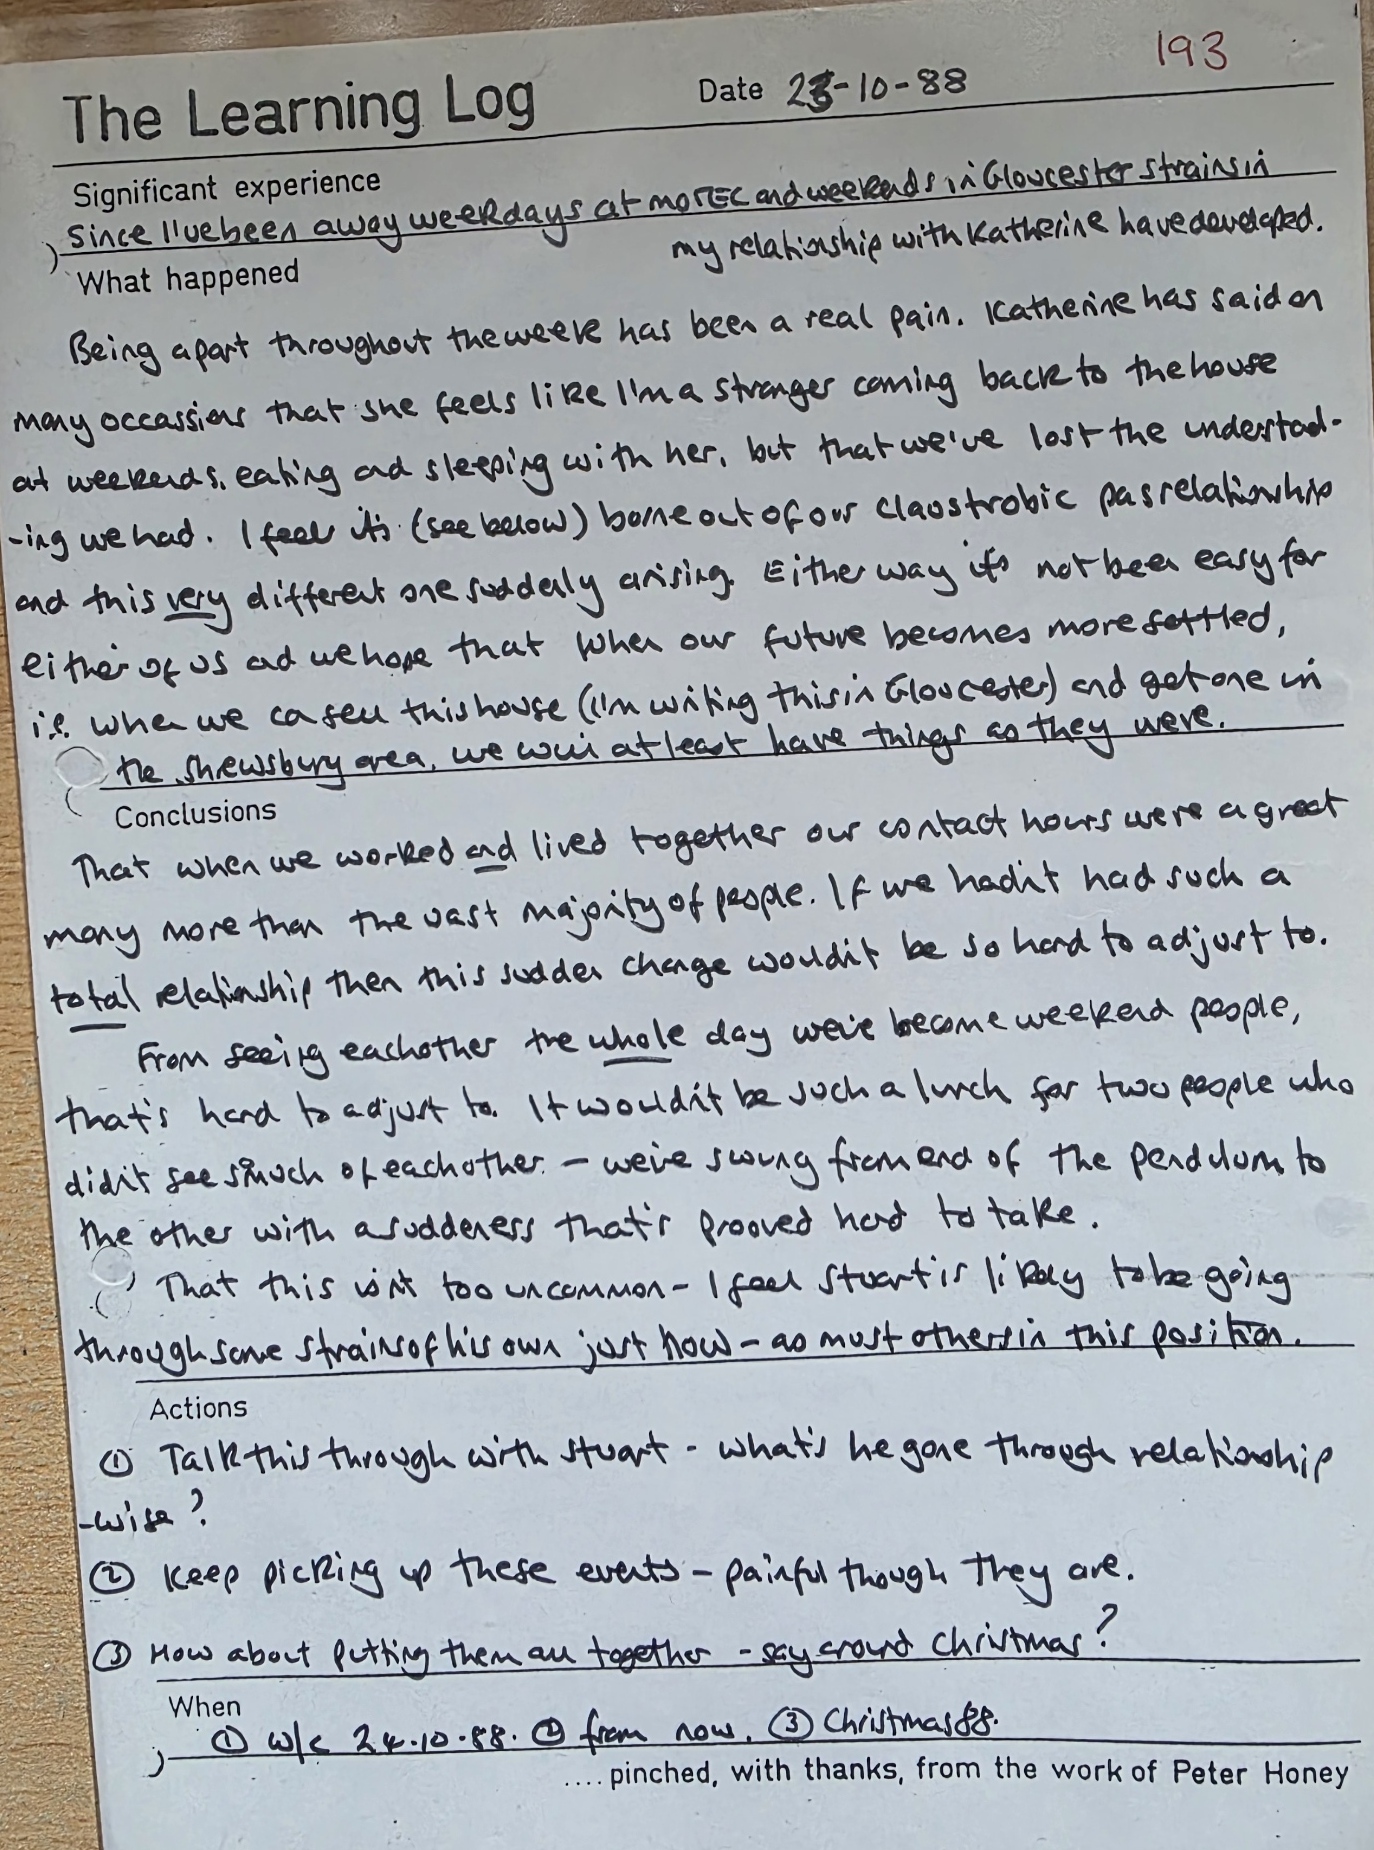 193
The Learning Log
Date 23-10-88
Significant experience
Since I've been away weekdays at MOTEC and weekends in Gloucester strains in
my relationship with Katherine have developed.
What happened
Being apart throughout the week has been a real pain. Katherine has said on
many occassions that she feels like I'm a stranger coming back to the house
at weekends, eating and sleeping with her, but that we've lost the understad-
-ing we had. I feel it's (see below) borne out of our claustrobic pas relationship
and this very different one suddenly arising. Either way it's not been easy for
either of us and we hope that when our future becomes more settled,
i.e. when we ca sell this house (I'm writing this in Gloucester) and get one in
the Shrewsbury area, we will at least have things as they were.
Conclusions
That when we worked and lived together our contact hours were a great
many more than the vast majority of people. If we hadn't had such a
total relationship then this sudden change wouldn't be so hard to adjust to.
From seeing eachother the whole day we've become weekend people,
that's hard to adjust to. It wouldn't be such a lurch for two people who
didn't see so much of eachother. - we've swung from end of the pendulum to
the other with a suddeness that's prooved hard to take.
That this isn't too uncommon - I feel Stuart is likely to be going
through some strains of his own just now - as must others in this position.
Actions
① Talk this through with Stuart - what's he gone through relationship
-wise?
② Keep picking up these events - painful though they are.
③ How about putting them all together - say around Christmas?
When
① w/c 24.10.88. ② from now. ③ Christmas 88.
....pinched, with thanks, from the work of Peter Honey